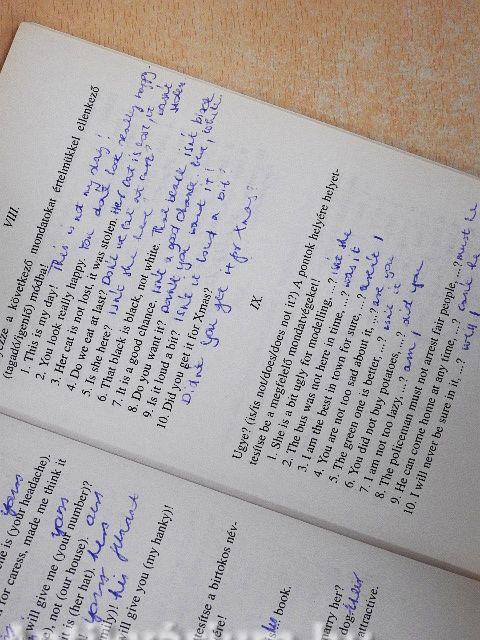 VIII.
a következő mondatokat értelmükkel ellenkező
(tagadó/igenlő) módba!
1. This is my day! This is not my day!
2. You look really happy. You don't look really happy.
3. Her cat is not lost, it was stolen. Her cat is lost, it wasn't stolen
4. Do we eat at last? Don't we eat at last?
5. Is she here? Isn't she here?
6. That black is black, not while. That black isn't black, but, while.
7. It is a good chance. Isn't a good chance
8. Do you want it? Don't you want it!
9. Is it loud a bit? Isn't it loud a bit?
10. Did you get it for Xmas?
Didn't you get it for Xmas?
IX.
Ugye? (is/is not/does/does not it?) A pontok helyére helyet-
tesítse be a megfelelő mondatvégeket!
1. She is a bit ugly for modelling, ...? isn't she
2. The bus was not here in time, ...? was it
3. I am the best in town for sure, ...? aren't I
4. You are not too sad about it, ...? are you
5. The green one is better, ...? isn't it
6. You did not buy potatoes, ...? did you
7. I am not too lazy, ...? am I
8. The policeman must not arrest fair people, ...? must he
9. He can come home at any time, ...? can't he
10. I will never be sure in it, ...? will I
one is (your headache). yours
for caress, made me think it
will give me (your number)? yours
not (our house). ours
it is (her hat). hers
will give you (my hanky)!
a birtokos név-
book.
marry her?
attractive.